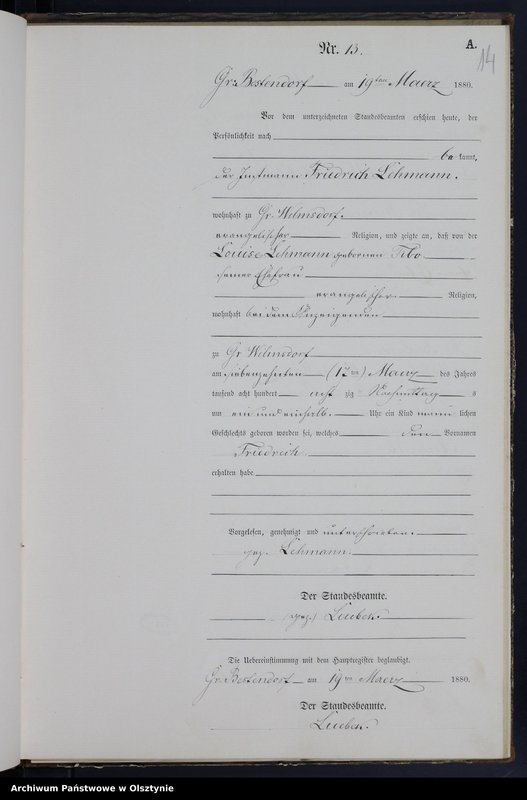 Nr. 13.
A.
14
Gr. Bestendorf am 19ten Maerz 1880.
Vor dem unterzeichneten Standesbeamten erschien heute, der
Persönlichkeit nach
be kannt,
der Instmann Friedrich Lehmann.
wohnhaft zu Gr. Wilmsdorf.
evangelischer Religion, und zeigte an, daß von der
Louise Lehmann gebornen
seiner Ehefrau
evangelischer Religion,
wohnhaft bei dem Anzeigenden
zu Gr. Wilmsdorf
am siebenzehnten (17ten) Maerz des Jahres
tausend acht hundert acht zig Nachmittag s
um ein und einhalb Uhr ein Kind männ lichen
Geschlechts geboren worden sei, welches den Vornamen
Friedrich
erhalten habe
Vorgelesen, genehmigt und unterschrieben.
gez. Lehmann.
Der Standesbeamte.
(gez.) Luebek.
Die Uebereinstimmung mit dem Hauptregister beglaubigt.
Gr. Bestendorf am 19ten Maerz 1880.
Der Standesbeamte.
Luebek.
Archiwum Państwowe w Olsztynie